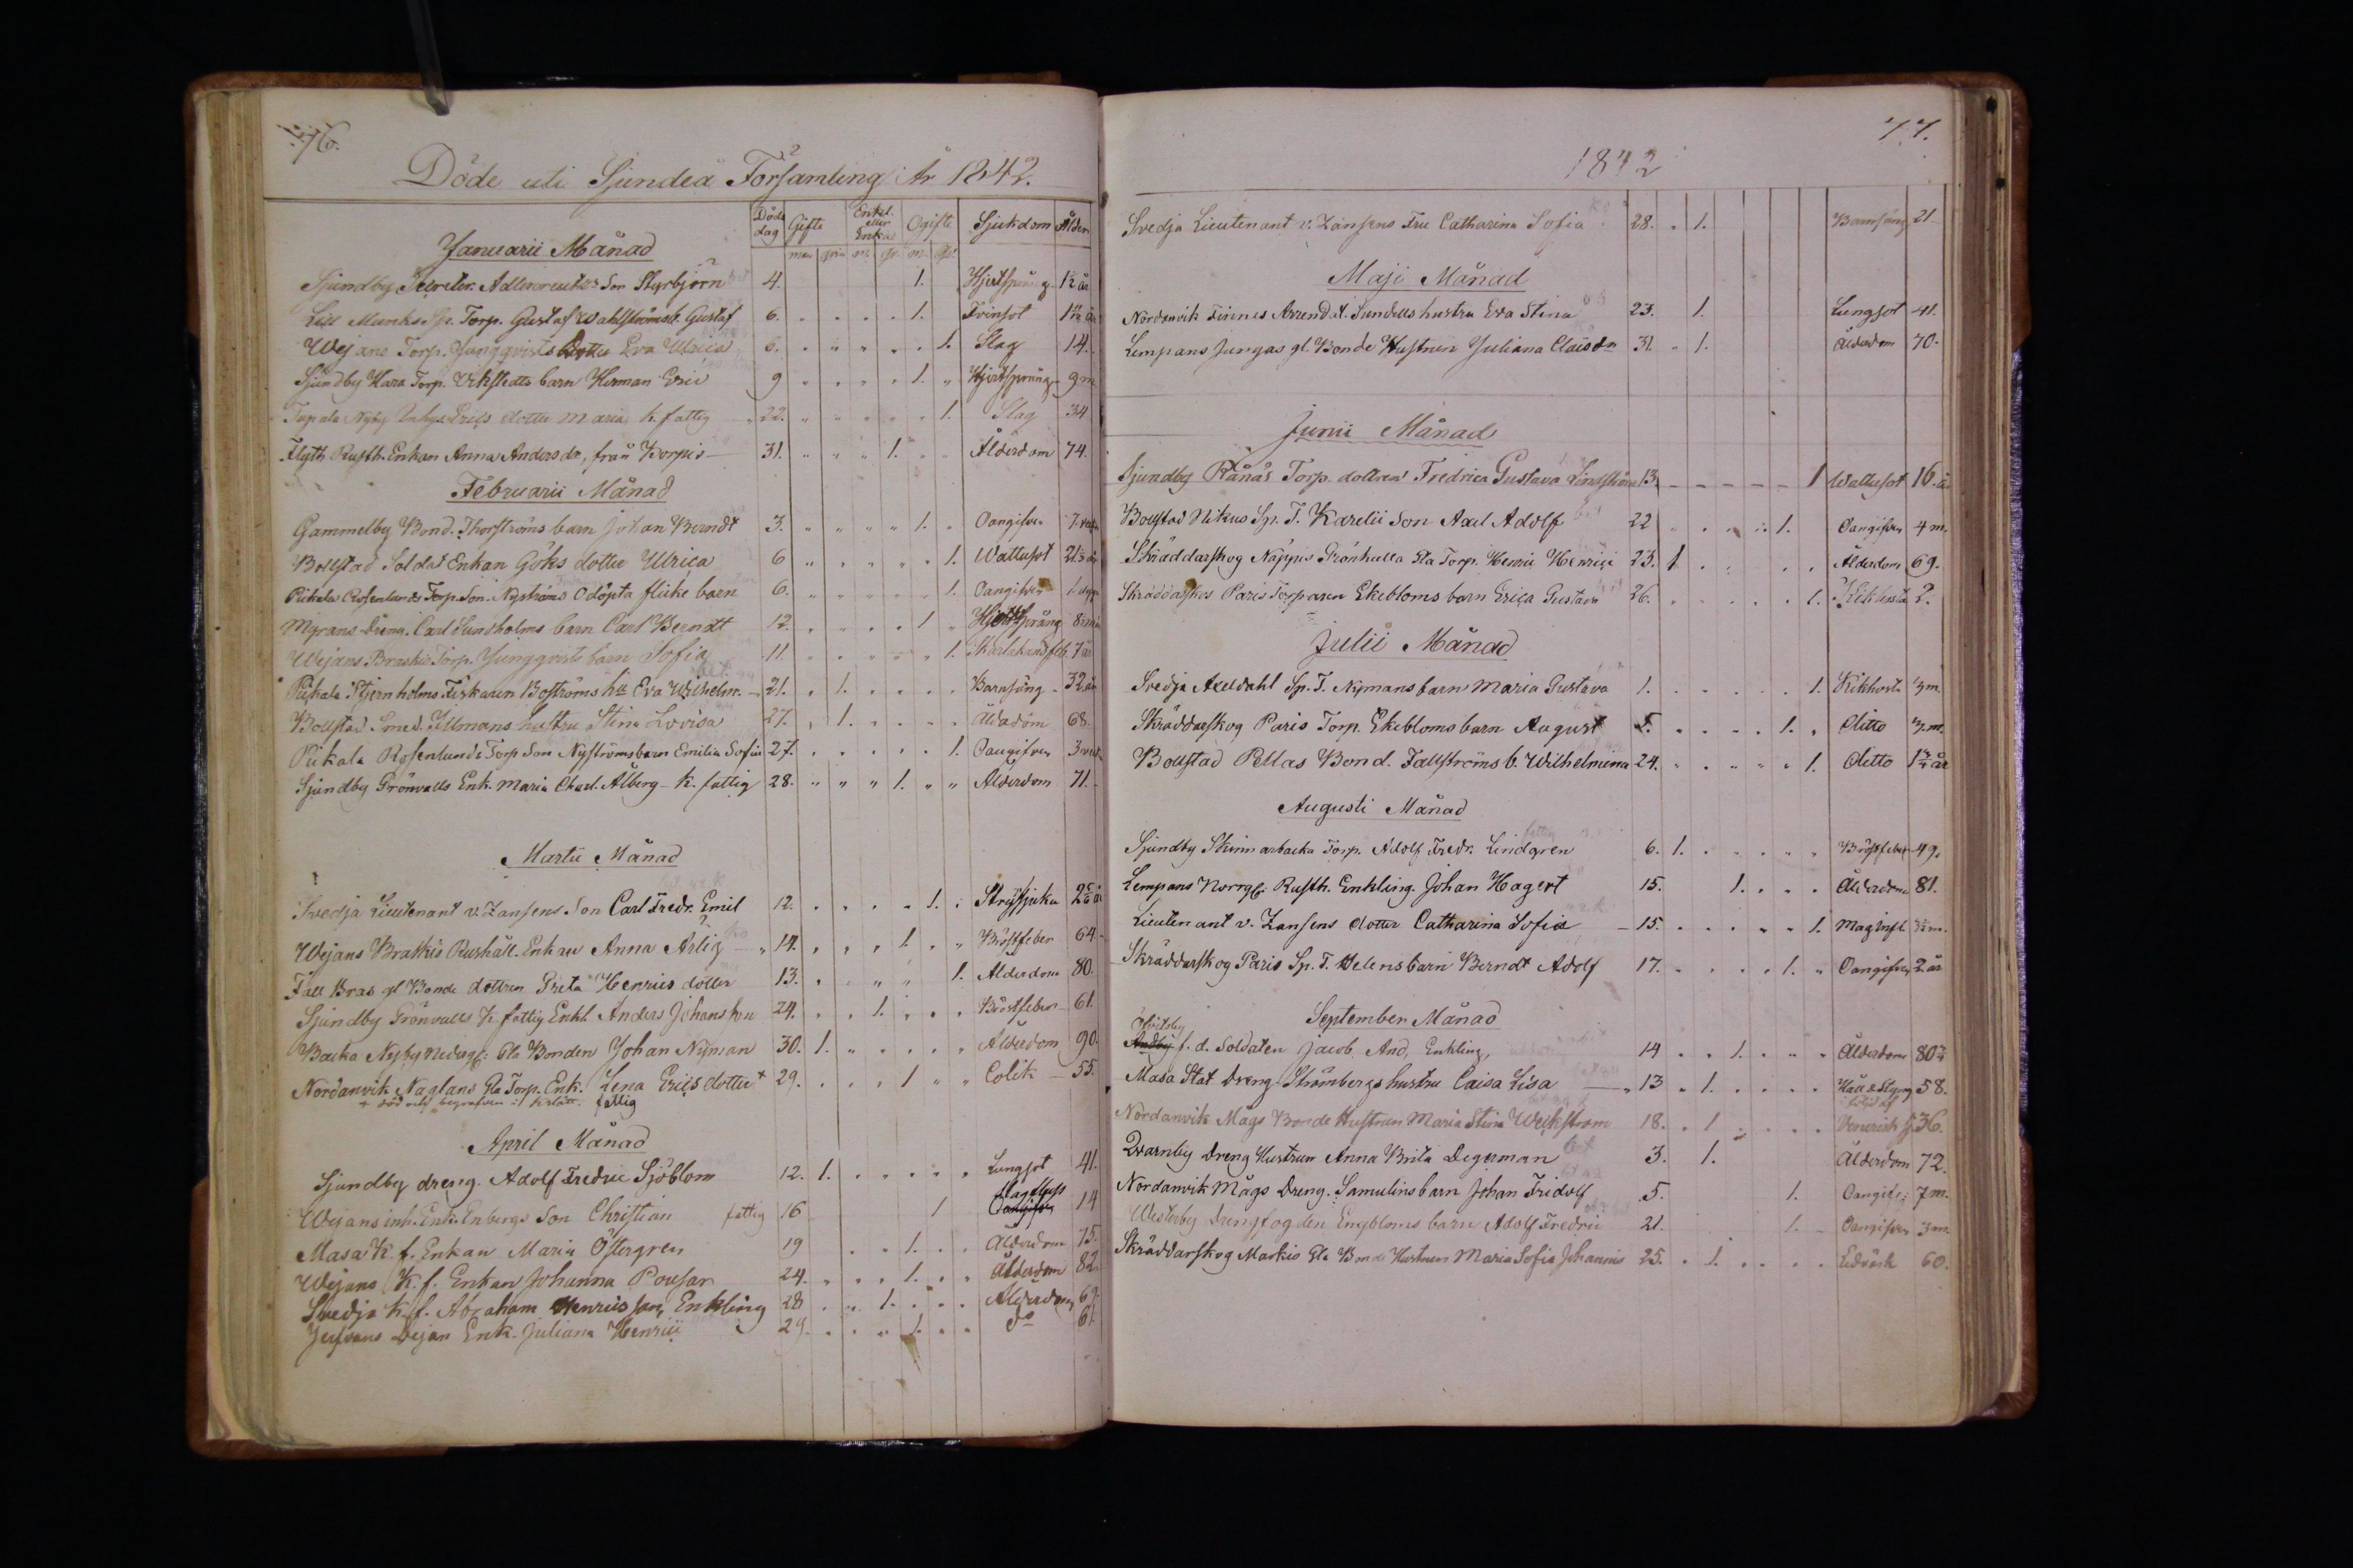 76.
Döde uti Sjundeå Församling År 1842.
Döde dag Gifte Enkl. eller Enkas Ogifte Sjukdom Ålder
man qvin m. qv. m. qv.
Januarii Månad
Sjundby Son Styrbjörn 4. 1. Hjertsprång 1½ år
Lill Munks Sp. Torp. Gustaf Wahlströms b. Gustaf 6. 1. Frinsot
Wejans Torp. Jungqvists Dotter Eva Ulrica 6. 1. Slag 14.
Sjundby Hara Torp. Ekstedts barn Herman Eric 9 1. Hjertsprång 9 m
Nyby Erics dotter Maria k. fattig 22. 1. Slag 34
Flyth Rusth. Enkan Anna Andersdr, från Worpis 31. 1. Ålderdom 74.
Februarii Månad
Gammelby Bond. Thorströms barn Johan Berndt 3. 1. Oangifven 7.
Bollstad Soldat Enkan Göks dotter Ulrica 6 1. Wattusot
Pikala Rosenlunds Torp. Son. Nyströms Odöpta flicke barn 6. 1. Oangifven
Myrans Dreng. Carl Sundholms barn Carl Berndt 12. 1 Hjertsprång
Wejans Braskis Torp. Jungqvists barn Sofia 11. 1. Skarlakansfeb. 7 år
Pikala Stjernholms Fiskaren Boströms hu Eva Wilhelm. 21. 1. Barnsäng 32 år
Bollstad Smed. Illmans hustru Stina Lovisa 27. 1. Ålderdom 68.
Pikala Rosenlunds Torp Son Nyströms barn Emilia Sofia 27. 1. Oangifven 3 vek
Sjundby Grönvalls Enk. Maria Charl. Ålberg k. fattig 28. 1. Ålderdom 71.
Martii Månad
Svedja Lieutenant v. Zansens Son Carl Fredr. Emil 12. 1. Strypsjuka
Wejans Braskis Rushåll. Enkan Anna Ärlig 14. 1. Bröstfeber 64
Fall Bras gl Bonde dottren Greta Henrics dotter 13. 1. Ålderdom 80.
Sjundby Grönvalls K. fattig Enkl. Anders Johansson 24. 1. Bröstfeber 61.
Backa Nyby Nedergl: Gla Bonden Johan Nyman 30. 1. Ålderdom 90.
Nordanvik Naglans Gla Torp. Enk. Lena Erics dotter + 29. 1 Colik 55.
+ död och begrafven i Kyrkslätt. fattig
April Månad
Sjundby dreng. Adolf Fredric Sjöblom 12. 1. Lungsot 41.
Wejans inh. Enk. Enbergs Son Christian fattig 16 1 Oangifven 14
Masa K. f. Enkan Maria Östergren 19 1. Ålderdom 75.
Wejans K. f. Enkan Johanna Pousar 24. 1. Ålderdom 82
Svedja k. f. Abraham Henricsson, Enkling 28 1. Ålderdom
Jufvans Dejan Enk. Juliana Henrici 29. 1. do 61.
77.
1842
Svedja Lieutenant v. Zansens Fru Catharina Sofia 28. 1. Barnsäng 21
Maji Månad
Nordanvik Finnes Arrendat. Sundells hustru Eva Stina 23. 1. Lungsot 41.
Lempans Jungas gl. Bonde Hustrun Juliana Claisdr 31. 1. Ålderdom 70.
Junii Månad
Sjundby Rånäs Torp. dottren Fredrica Gustava Lindström 13. 1 Wattusot 16. år
Bollstad Nikus Sp. T. Karelii Son Axel Adolf 22 1. Oangifven 4 m.
Skräddarskog Näppis Grönkulla Gla Torp. Henric Henrici 23. 1 Ålderdom 69.
Skräddarskog Paris Torparen Ekebloms barn Erica Gustava 26. 1. Kikhosta 2.
Julii Månad
Svedja Axeldahl Sp. T. Nymans barn Maria Gustava 1. 1. Kikhosta
Skräddarskog Paris Torp. Ekebloms barn August 5. 1. Ditto
Bollstad Pellas Bond. Fallströms b. Wilhelmina 24. 1. Ditto
Augusti Månad
Sjundby Skinnarbacka Torp. Adolf Fredr. Lindgren 6. 1. Bröstfeber 49.
Lempans Norrgl. Rusth. Enkling. Johan Hagert 15. 1. Ålderdom 81.
Lieutenant v. Zansens dotter Catharina Sofia 15. 1. Mag Infl.
Skräddarskog Paris Sp. T. Helens barn Berndt Adolf 17. 1. Oangifven 2 år
September Månad
f. d. Soldaten Jacob And, Enkling, 14 1. Ålderdom
Masa Stat Dreng Strömbergs hustru Caisa Lisa 13 1. Håll & Styng 58.
Nordanvik Mågs Bonde Hustrun Maria Stina Weckström 18. 1 Venerisk 36.
Qvarnby Dreng Hustrun Anna Brita Degerman 3. 1. Ålderdom 72.
Nordanvik Mågs Dreng. Samulins barn Johan Fridolf 5. 1. Oangif: 7 m.
Westerby Drengfogden Engbloms barn Adolf Fredric 21. 1. Oangifven 3 m.
Skräddarskog Markis Gla Bonde Hustrun Maria Sofia Johannis 25. 1. 60.